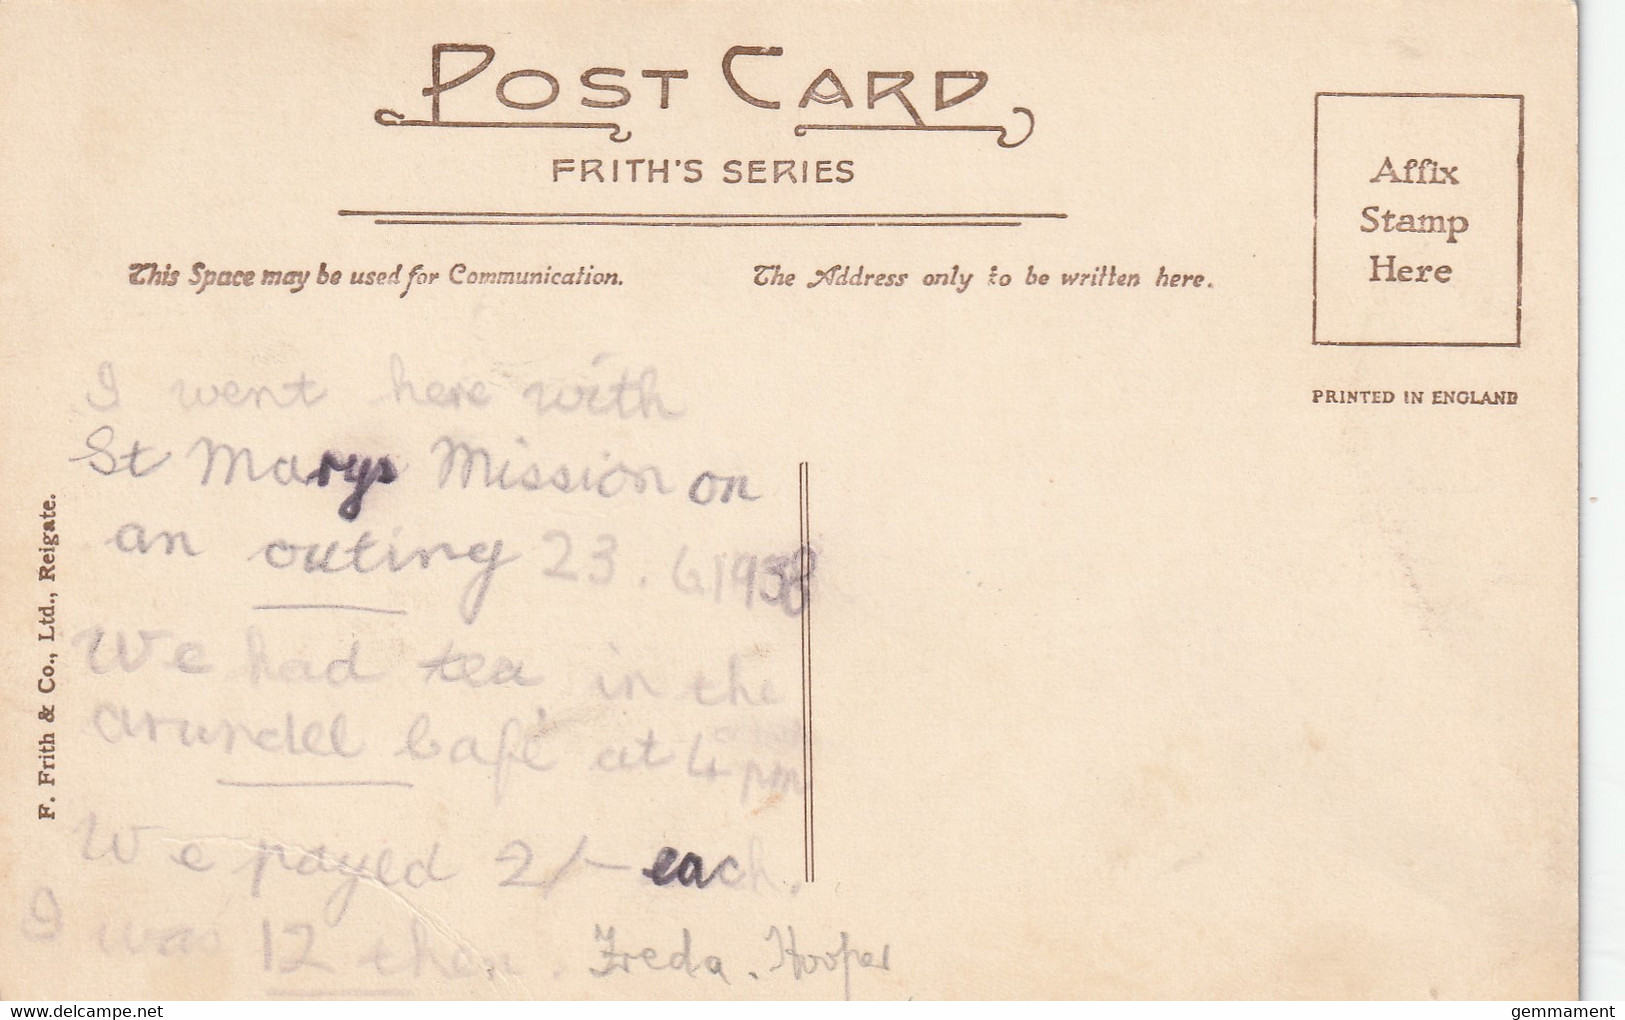 POST CARD
FRITH'S SERIES
Affix
Stamp
Here
This Space may be used for Communication.
The Address only to be written here.
PRINTED IN ENGLAND
I went here with
St Marys Mission on
an outing 23. 6 1938
We had tea in the
arundel Café at 4 pm
We payed 2/- each.
I was 12 then. Freda. Hooper
F. Frith & Co., Ltd., Reigate.
delcampe.net
gemmament